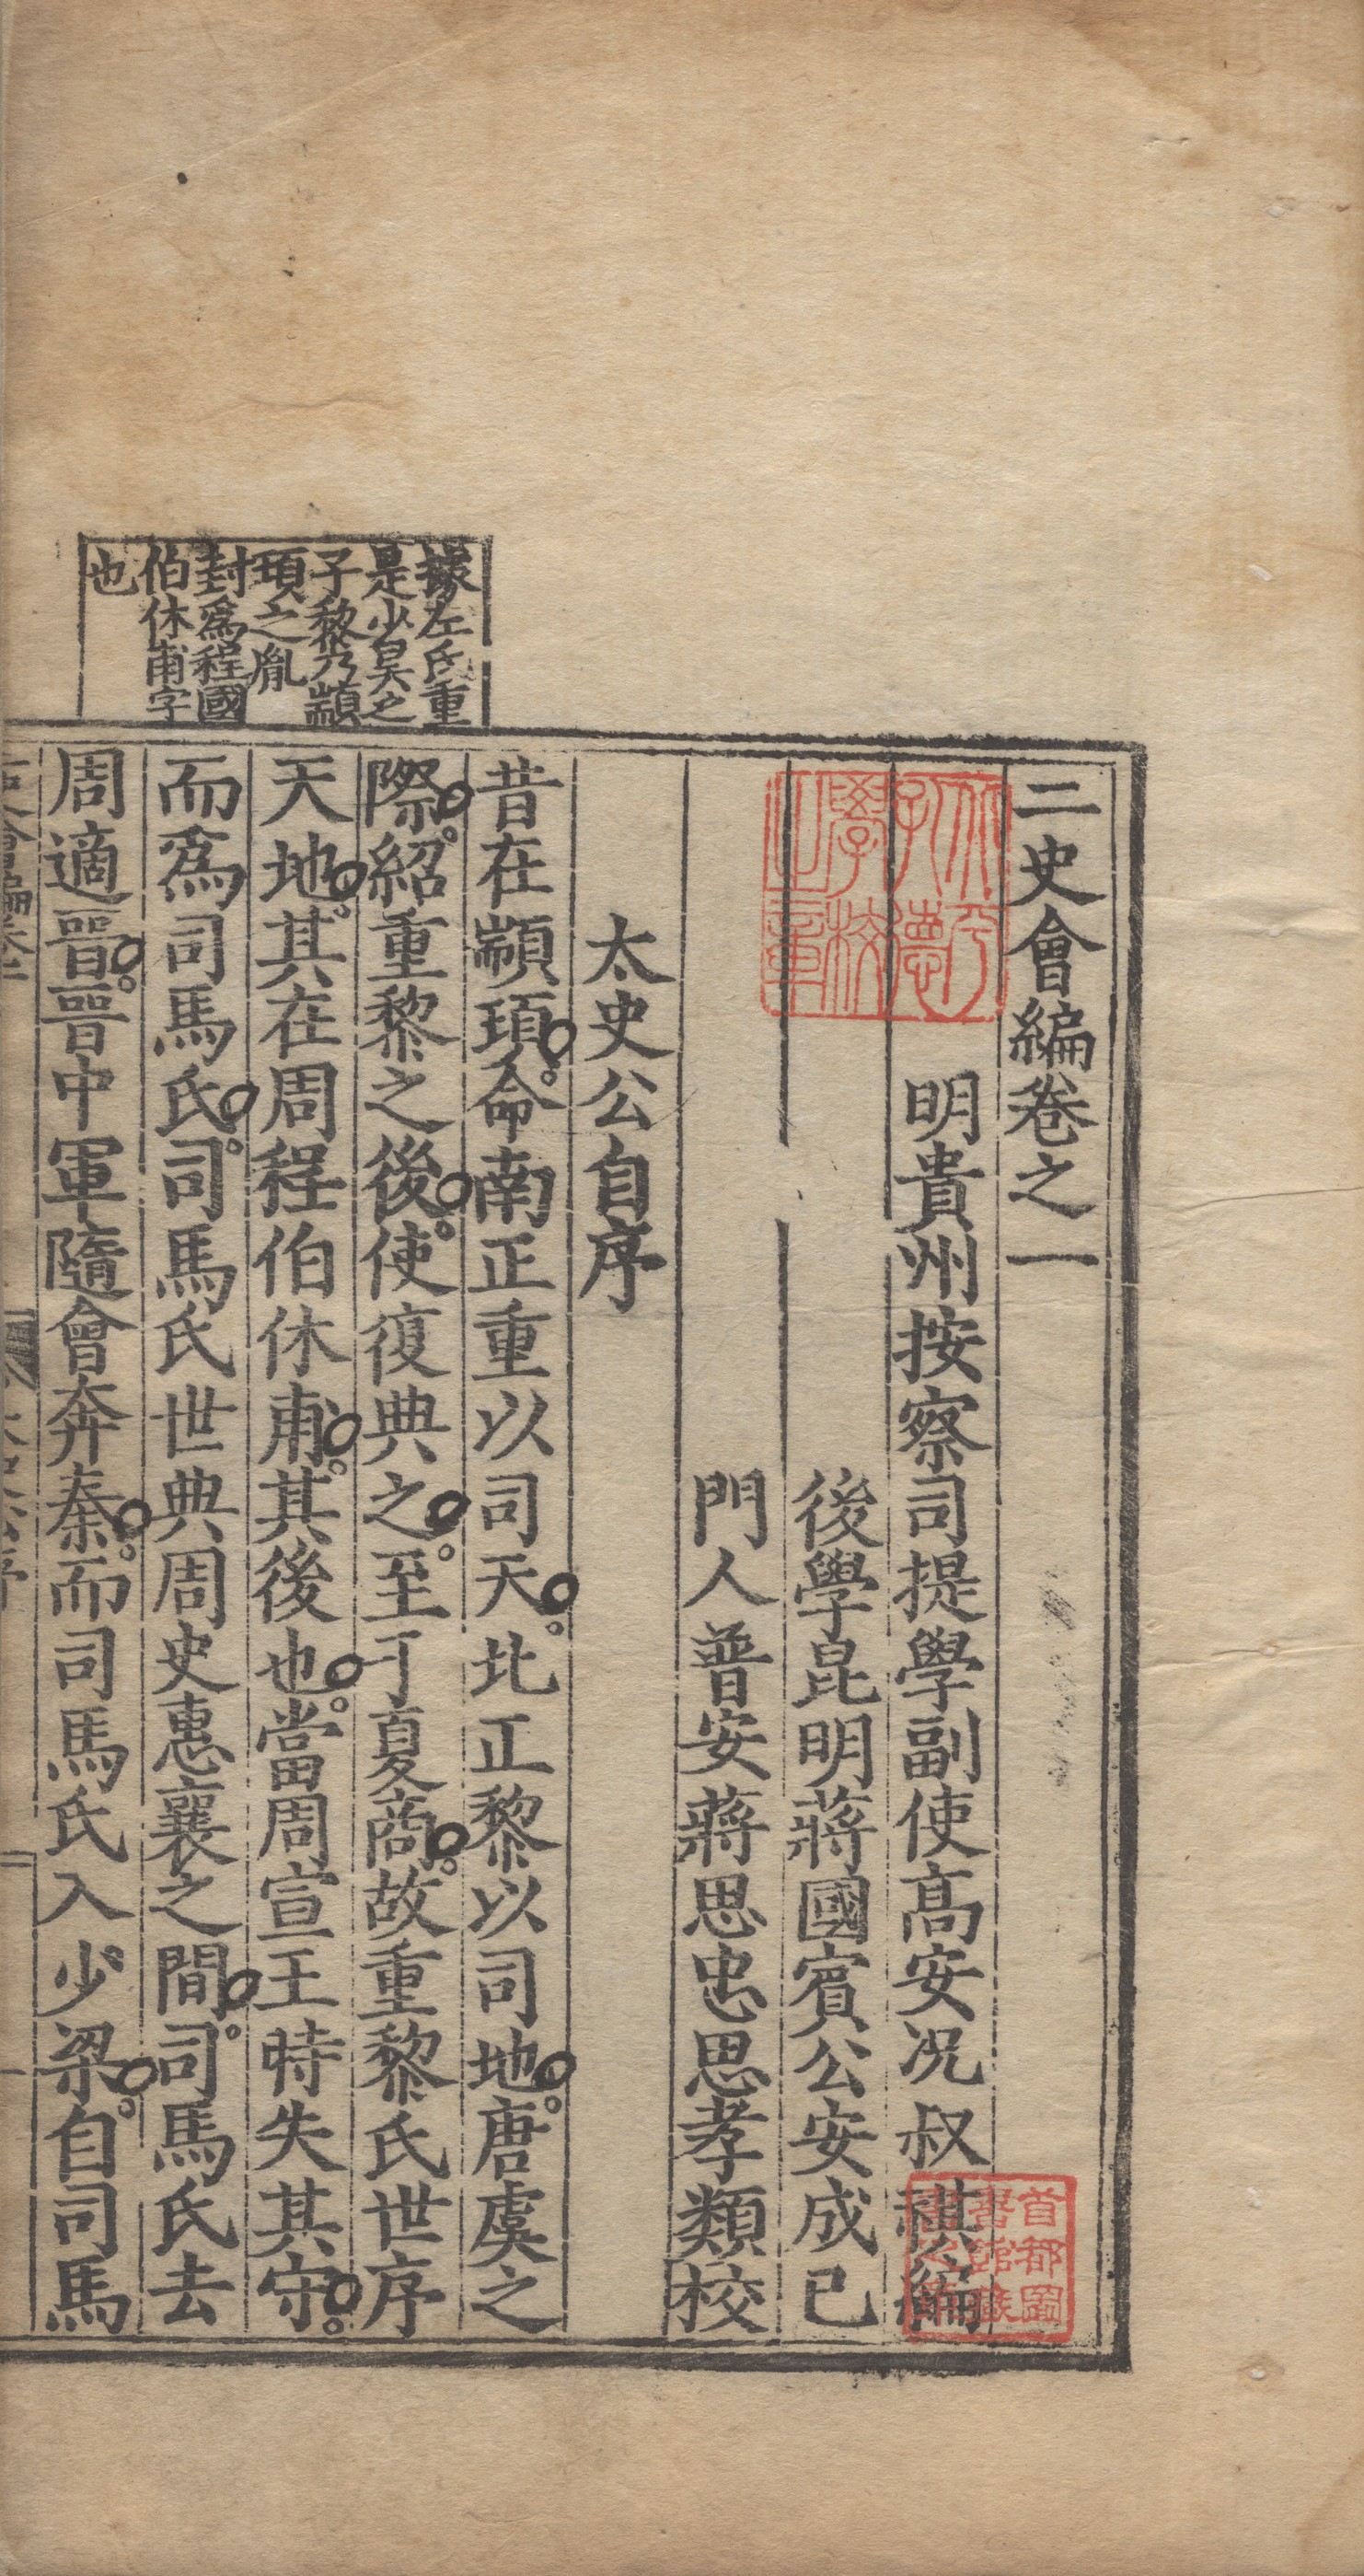 二史會編卷之一
明貴州按察司提學副使髙安况叔祺編
後學昆明蔣國賓公安成已
門人普安蔣思忠思孝類校
太史公自序
據左氏重
是少昊之
子黎乃顓
頊之胤
封爲程國
伯休甫字
也
昔在顓頊命南正重以司天北正黎以司地唐虞之
際紹重黎之後使復典之至于夏商故重黎氏世序
天地其在周程伯休甫其後也當周宣王時失其守
而爲司馬氏司馬氏世典周史惠襄之間司馬氏去
周適晉晉中軍隨會奔秦而司馬氏入少梁自司馬
首都圖
書館藏